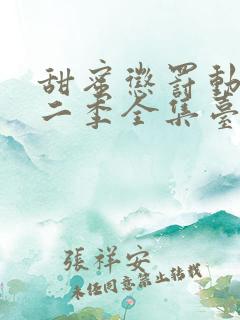 甜蜜懲罰動
二季全集臺
張祥安
未经同意禁止转载